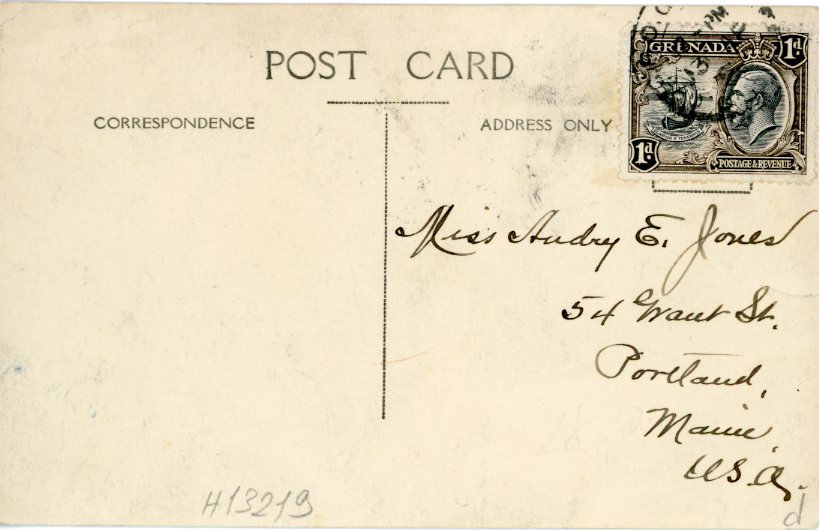 POST CARD
CORRESPONDENCE
ADDRESS ONLY
GRENADA 1d.
1d. POSTAGE & REVENUE
PM
13
Miss Audry E. Jones
54 Grant St.
Portland,
Maine
U.S.A.
H13219
d